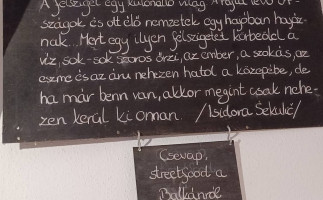 A félsziget egy különálló világ. A rajta lévő or-
szágok és ott élő nemzetek egy hapban hajóz-
nak. Mert egy ilyen félszigetet körbeölel a
víz, sok-sok szoros őrzi, az ember, a szokás, az
eszme és az áru nehezen hatol a közepébe, de
ha már benn van, akkor megint csak nehe-
zen kerül ki onnan. /Isidora Sekulić/
Csevap,
streetfood a
Balkánról